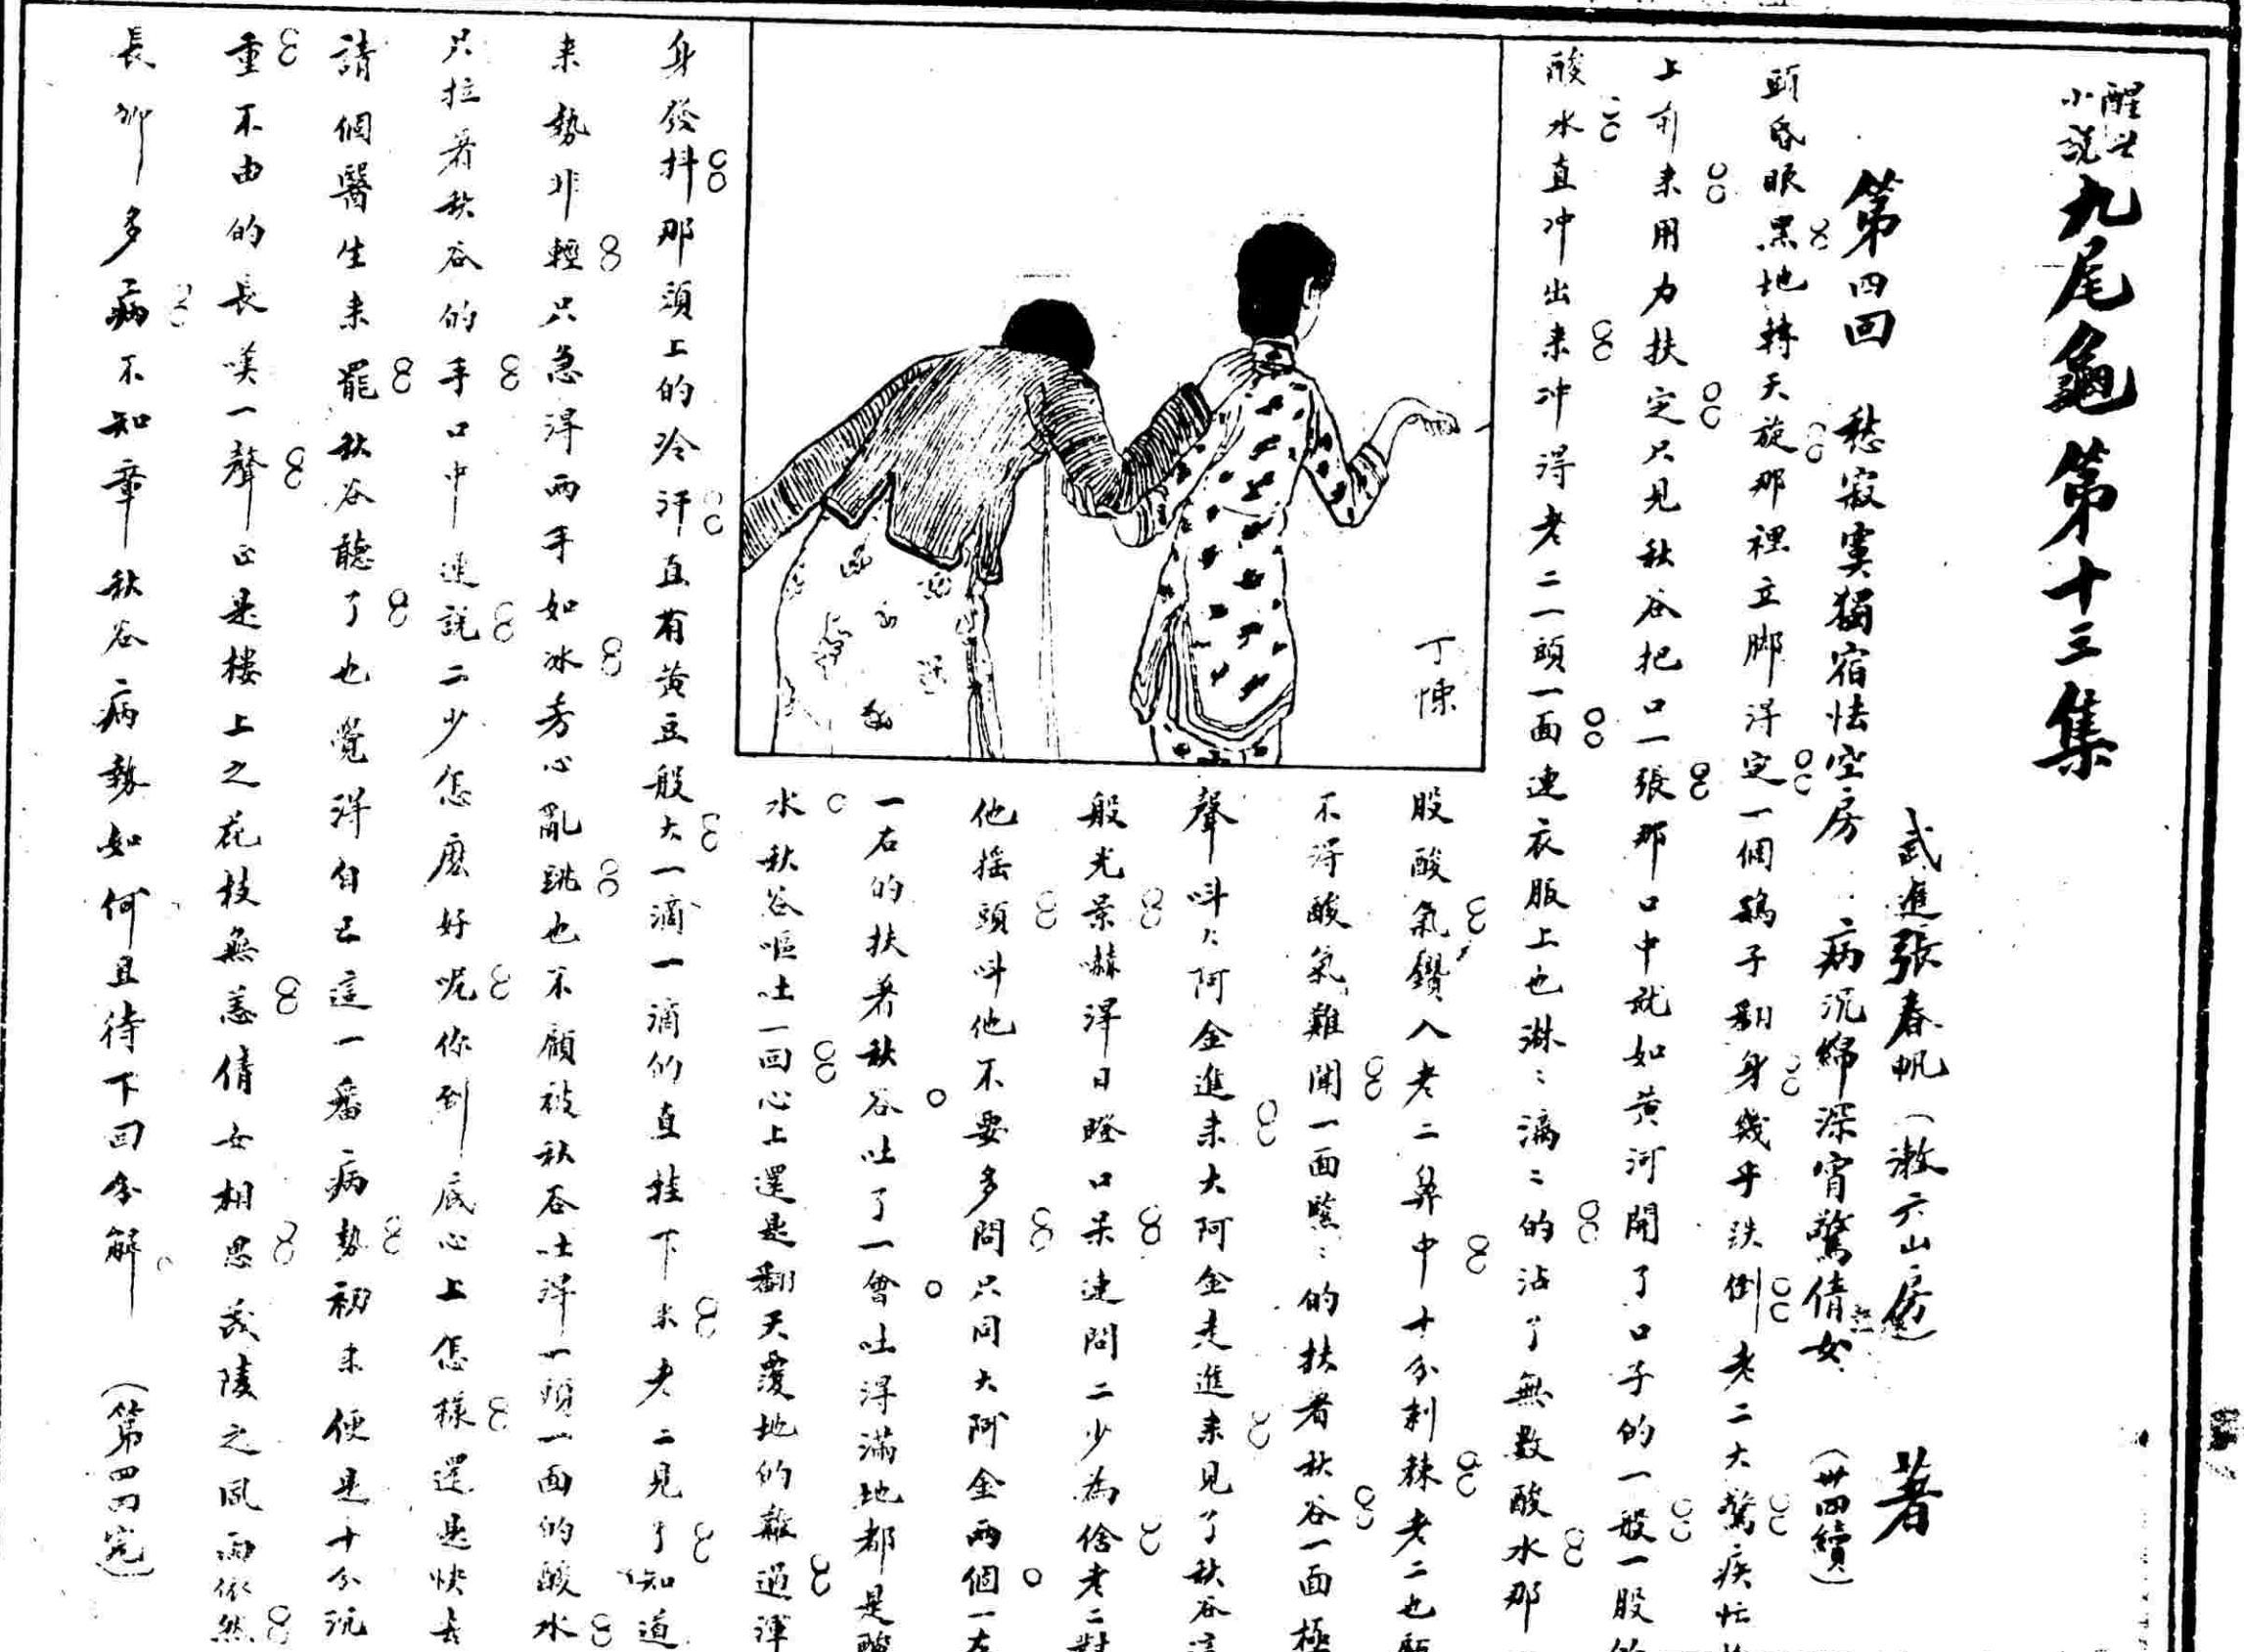 醒世小説 九尾龜 第十三集
武進張春帆（漱六山房）著
第四回 愁寂寞獨宿怯空房 病沉綿深宵驚倩女（卅四續）
頭昏眼黑地轉天旋那裡立脚得定一個鷂子翻身幾乎跌倒老二大驚疾忙
上前來用力扶定只見秋谷把口一張那口中就如黃河開了口子的一般一股
酸水直冲出來冲得老二一頭一面連衣服上也淋〻漓〻的沾了無數酸水那
股酸氣鑽入老二鼻中十分刺棘老二也顧
不得酸氣難聞一面緊〻的扶着秋谷一面極
聲叫大阿金進來大阿金走進來見了秋谷這
般光景嚇得目瞪口呆連問二少為啥老二對
他搖頭叫他不要多問只同大阿金兩個一左
一右的扶著秋谷吐了一會吐得滿地都是酸
水秋谷嘔吐一回心上還是翻天覆地的難過渾
身發抖那頭上的冷汗直有黃豆般大一滴一滴的直挂下來老二見了知道
來勢非輕只急得兩手如冰芳心亂跳也不顧被秋谷吐得一頭一面的酸水
只拉著秋谷的手口中連說二少怎麼好呢你到底心上怎樣還是快去
請個醫生來罷秋谷聽了也覺得自己這一番病勢初來便是十分沉
重不由的長嘆一聲正是樓上之花枝無恙倩女相思茂陵之風雨依然
長卿多病不知章秋谷病勢如何且待下回分解（第四回完）
丁悚